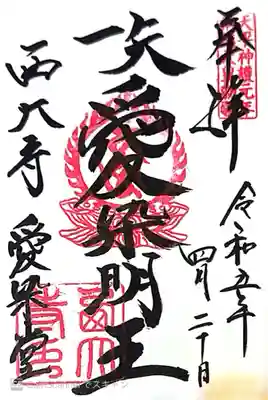 奉拝
令和五年
四月二十日
愛染明王
西大寺 愛染堂